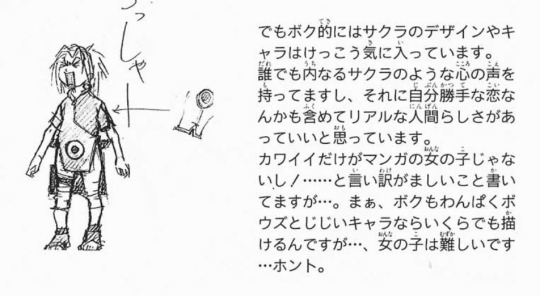 っしゃ
でもボク的にはサクラのデザインやキ
ャラはけっこう気に入っています。
誰でも内なるサクラのような心の声を
持ってますし、それに自分勝手な恋な
んかも含めてリアルな人間らしさがあ
っていいと思っています。
カワイイだけがマンガの女の子じゃな
いし!……と言い訳がましいこと書い
てますが…。まぁ、ボクもわんぱくボ
ウズとじじいキャラならいくらでも描
けるんですが…、女の子は難しいです
…ホント。